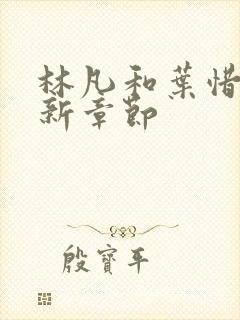 林凡和葉惜
新章節
殷寶平